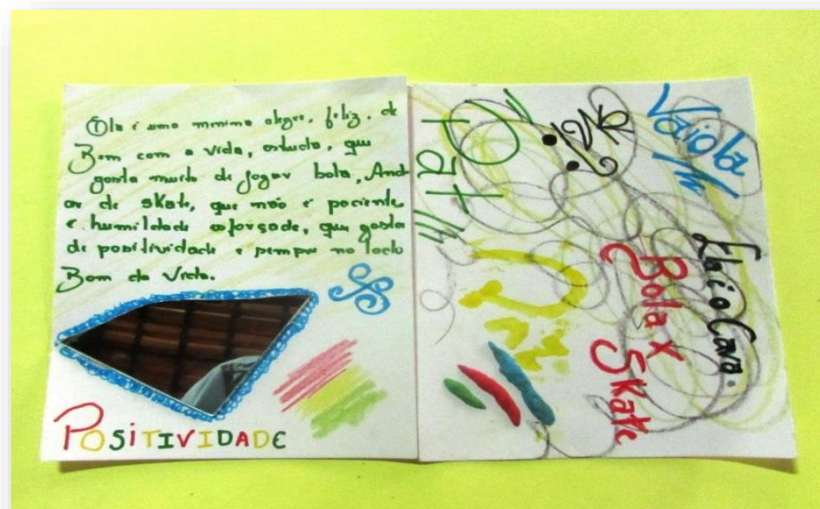 Ela é uma menina alegre, feliz, de
Bem com a vida, astuta, que
gosta muito de jogar bola, And
ar de skate, que não é paciente
e humildade esforçada, que gosta
de positividade e sempre no lado
Bom da Vida.
POSITIVIDADE
Vaiola
Bola X
Skate